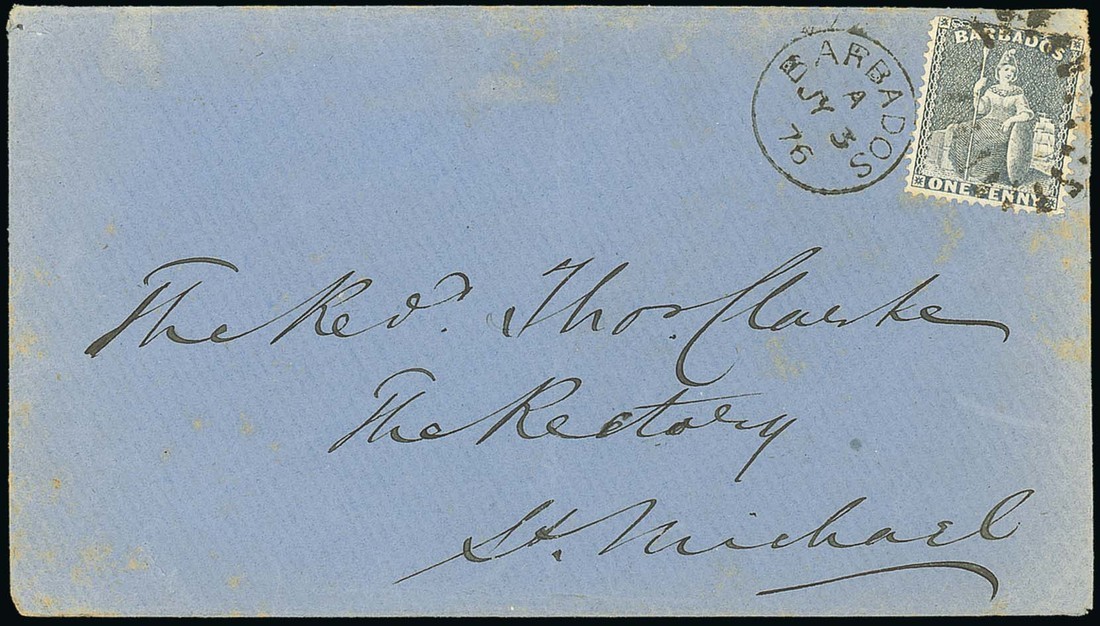 BARBADOS
A
JY 3
76
BARBADOS
ONE PENNY
The Revd. Thos. Clarke
The Rectory
St. Michael